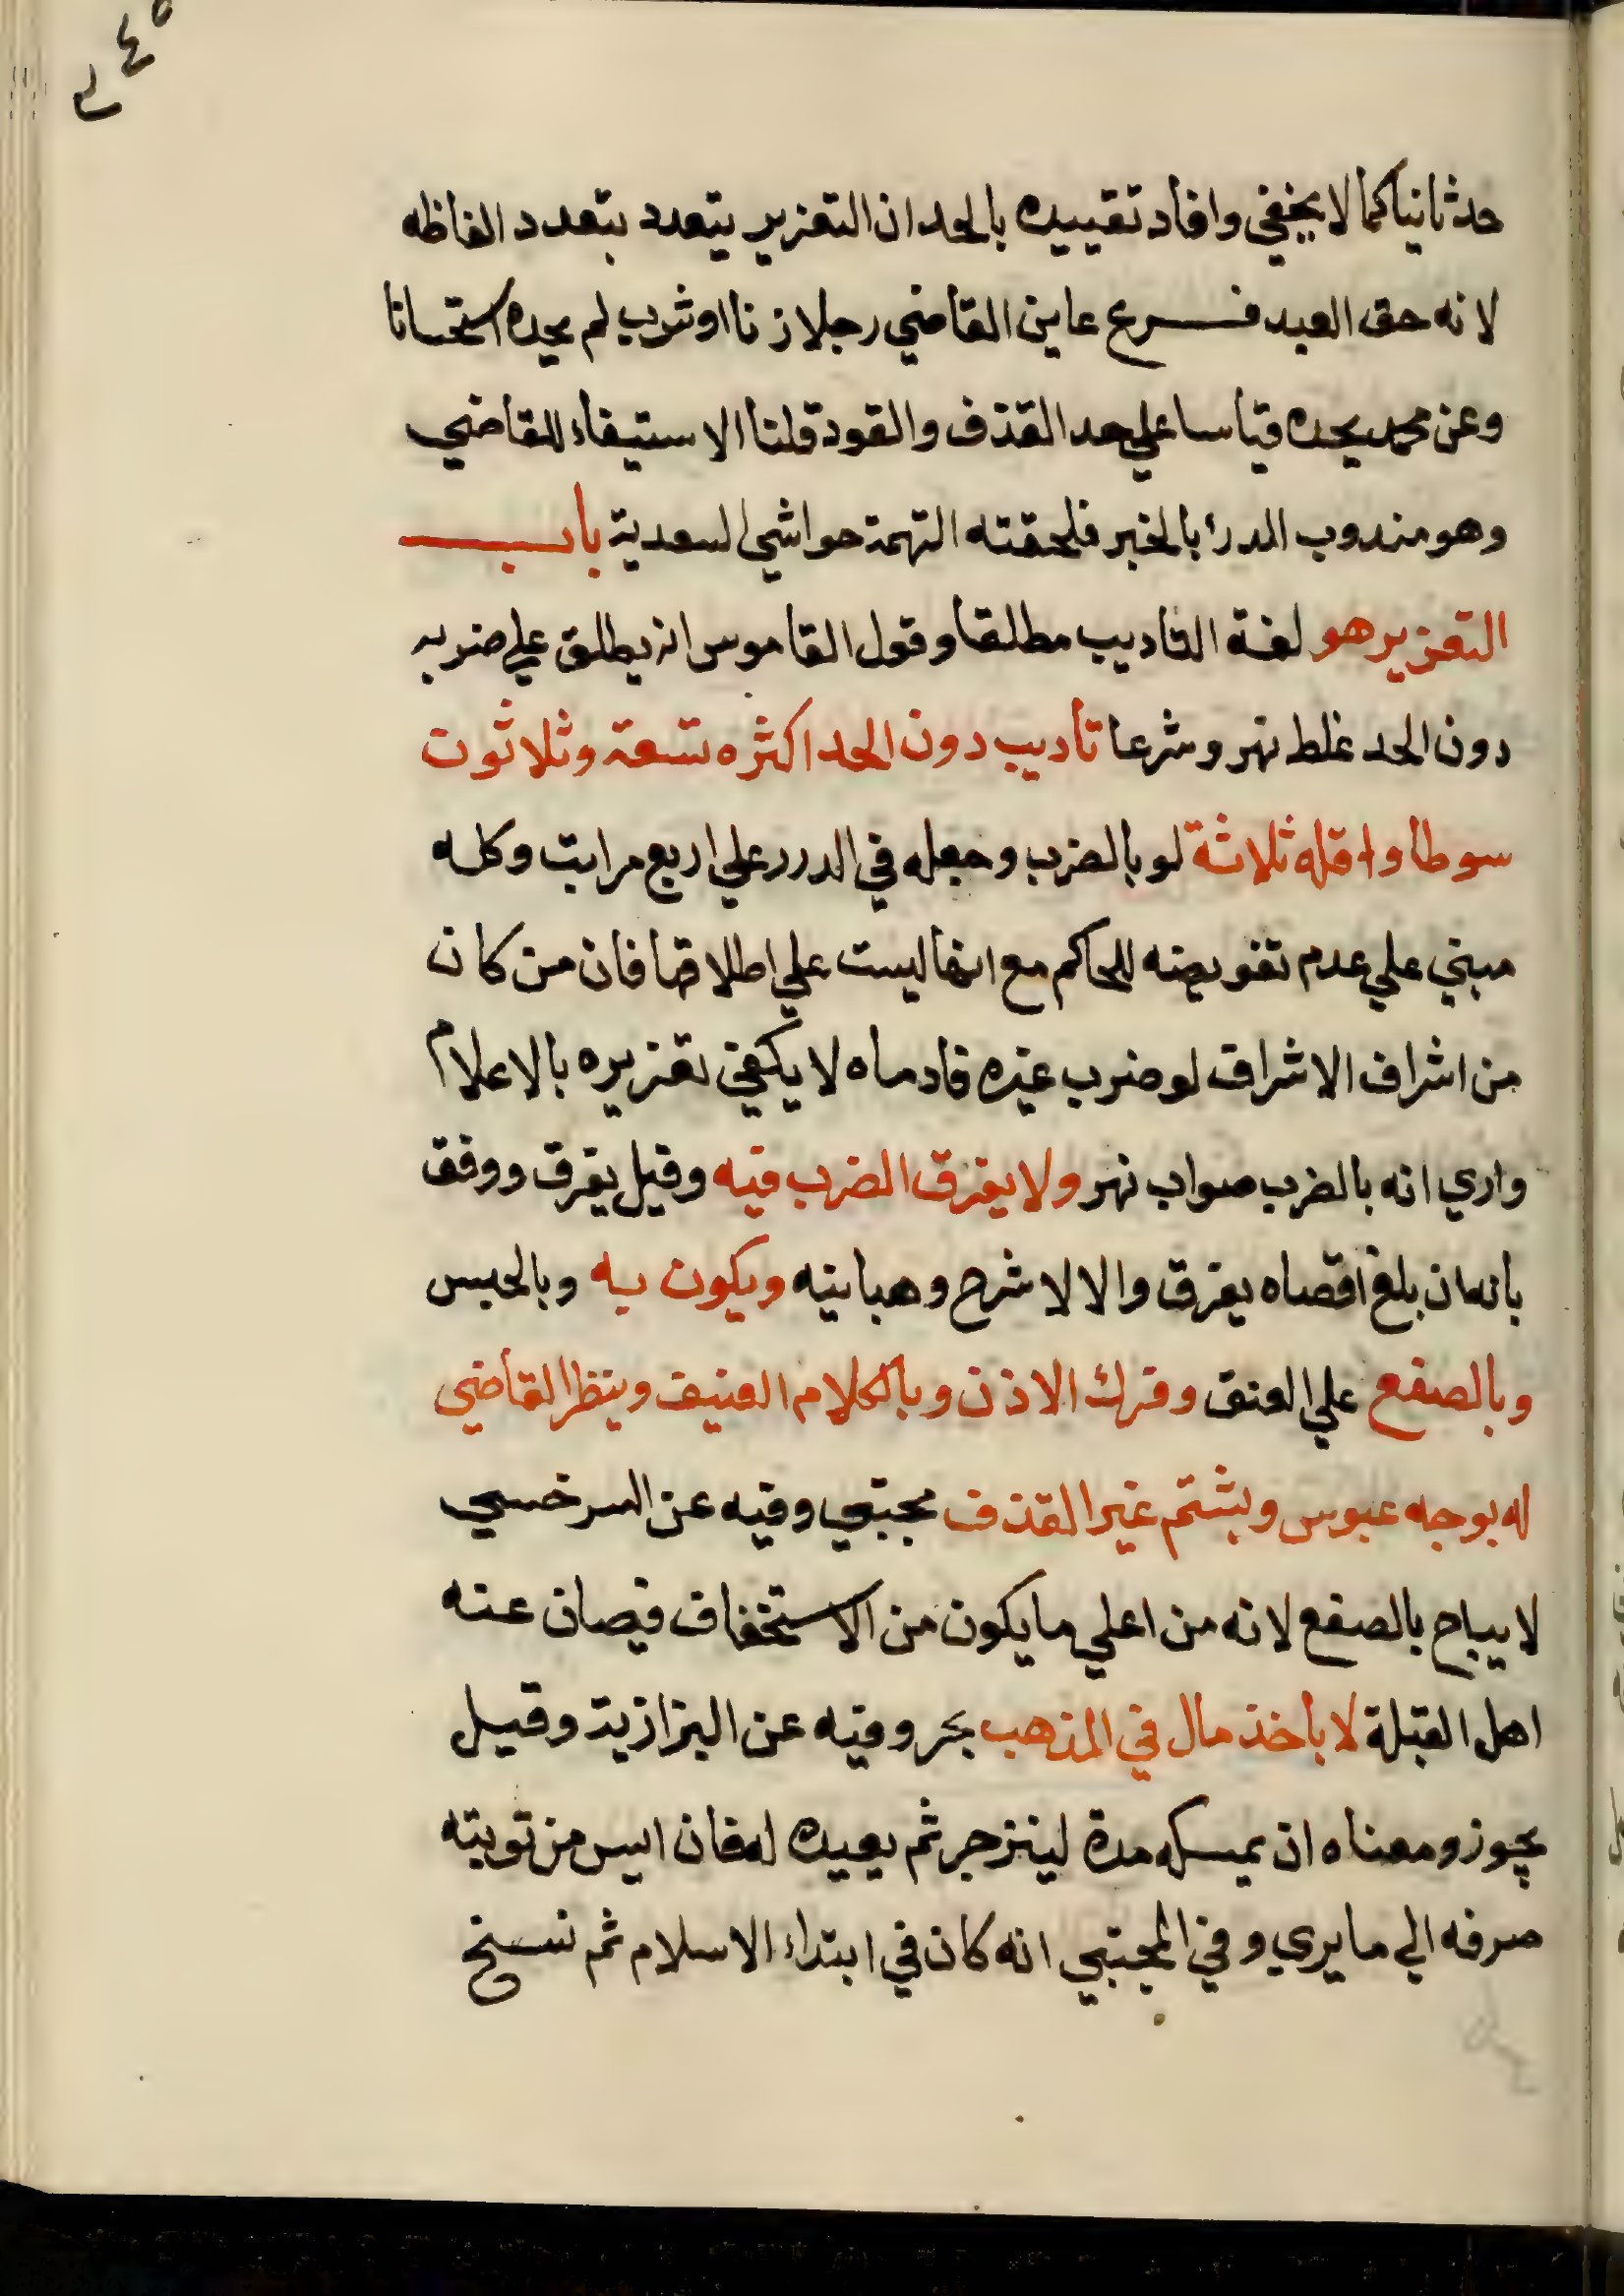 حد ثانيا كما لا يخفي وافاد تقييده بالحد ان التعزير يتعدد بتعدد الفاظه
لانه حق العبد فرع عاين القاضي رجلا زنا او شرب لم يحده استحسانا
وعن محمد يحده قياسا علي حد القذف والقود قلنا الاستيفاء للقاضي
وهو مندوب الدرأ بالخبر فلحقته التهمة حواشي السعدية باب
التعزير هو لغة التاديب مطلقا وقول القاموس انه يطلق علي ضربه
دون الحد غلط نهر وشرعا تأديب دون الحد اكثره تسعة وثلاثون
سوطا واقله ثلاثة لو بالضرب وجعله في الدرر علي اربع مراتب وكله
مبني علي عدم تفويضه للحاكم مع انها ليست علي اطلاقها فان من كان
من اشراف الاشراف لو ضرب غيره فادماه لا يكفي تعزيره بالاعلام
واري انه بالضرب صواب نهر ولا يفرق الضرب فيه وقيل يفرق ووفق
بانه ان بلغ اقصاه يفرق والا لا شرح وهبانيه ويكون به وبالحبس
وبالصفع علي العنق وفرك الاذن وبالكلام العنيف وينظر القاضي
له بوجه عبوس وبشتم غير القذف مجتبي وفيه عن السرخسي
لا يباح بالصفع لانه من اعلي ما يكون من الاستخفاف فيصان عنه
اهل القبلة لا باخذ مال في المذهب بحر وفيه عن البزازية وقيل
يجوز ومعناه ان يمسكه مدة لينزجر ثم يعيده له فان ايس من توبته
صرفه الي ما يري وفي المجتبي انه كان في ابتداء الاسلام ثم نسخ